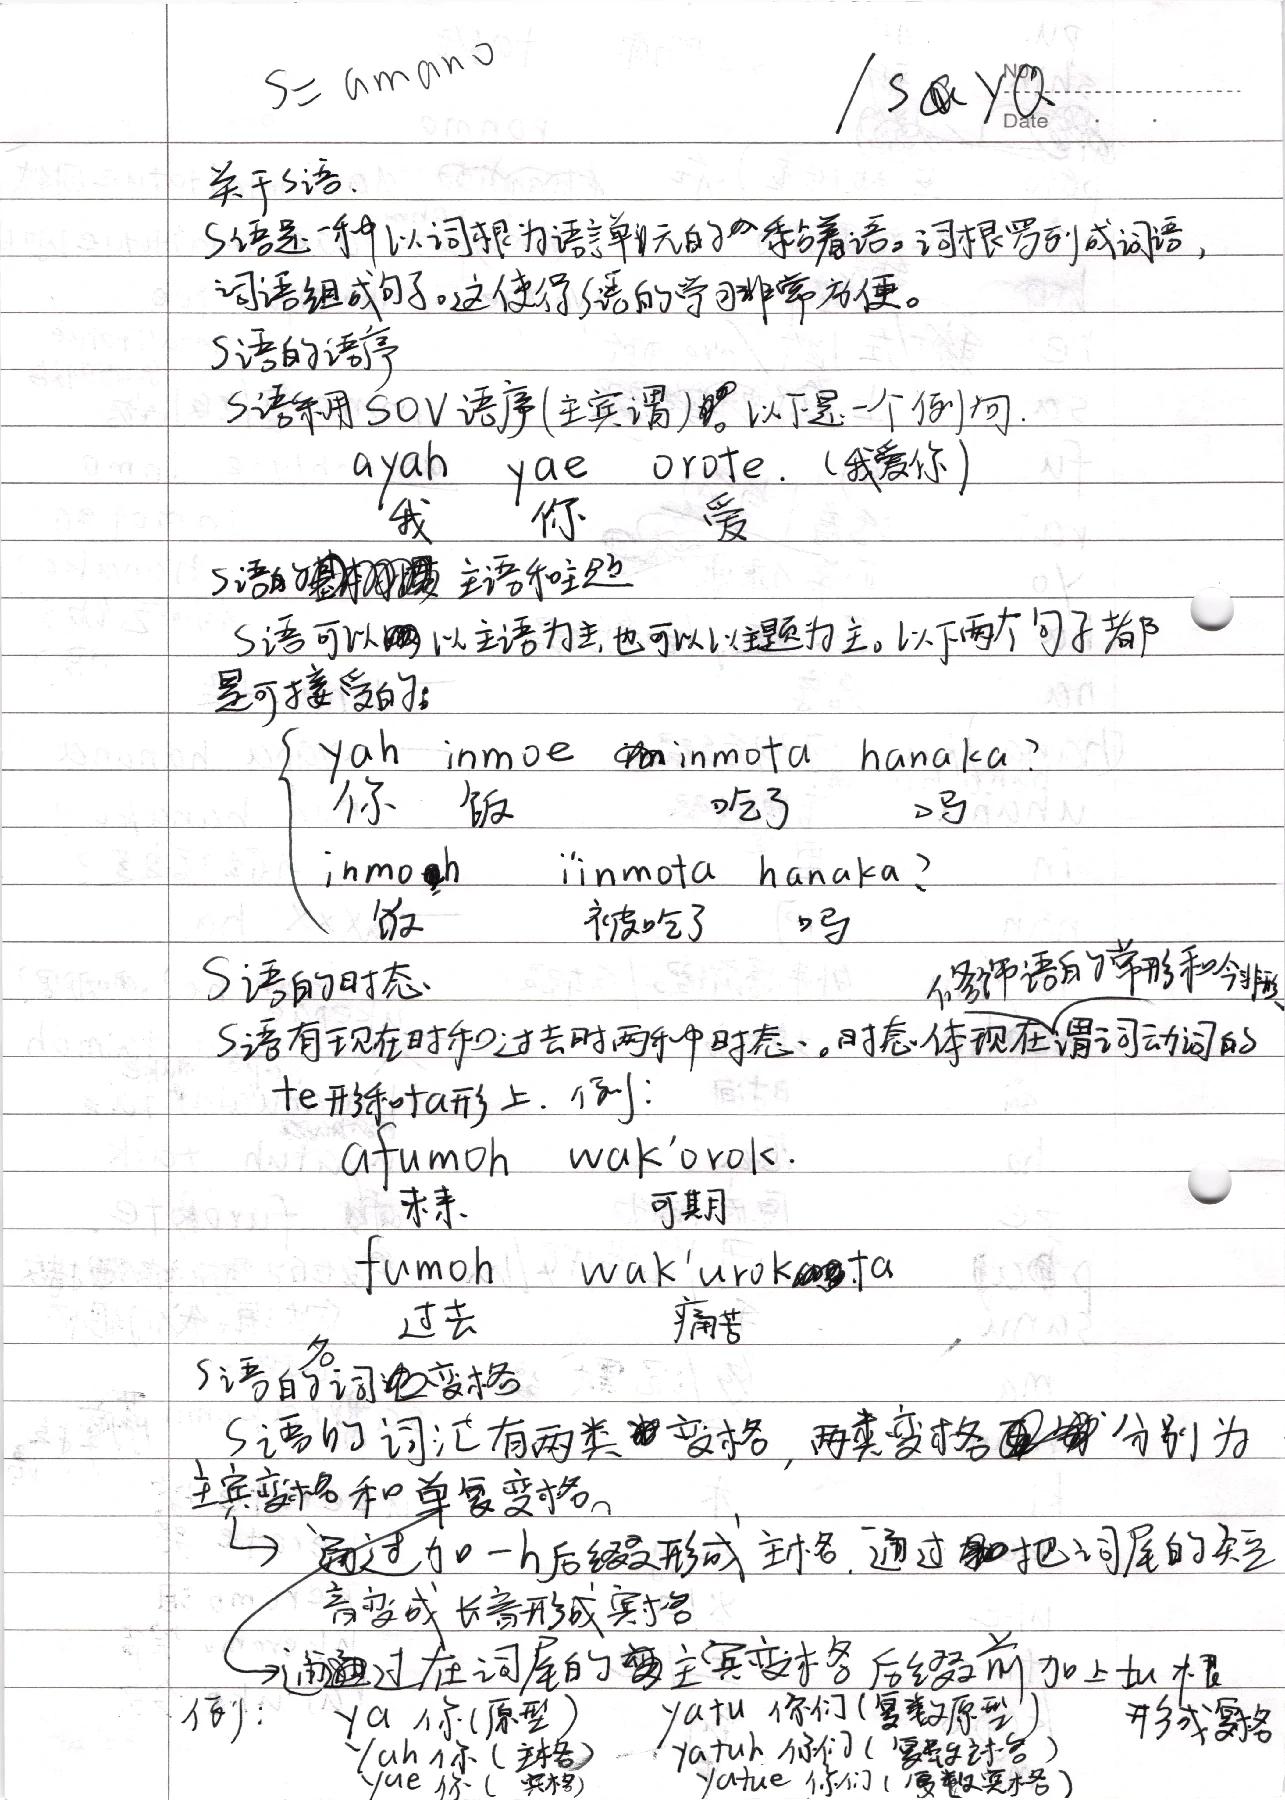 S= amano
/saya
No.
Date
关于S语.
S语是一种以词根为语言单元的黏着语。词根罗列成词语，
词语组成句子。这使得S语的学习非常方便。
S语的语序
S语利用SOV语序(主宾谓)。以下是一个例句.
ayah yae orote. (我爱你)
我 你 爱
S语的 主语和主题
S语可以以主语为主,也可以以主题为主。以下两个句子都
是可接受的:
yah inmoe inmota hanaka?
你 饭 吃了 吗
inmoh i'inmota hanaka?
饭 被吃了 吗
S语的时态
修饰语的常形和今非形
S语有现在时和过去时两种时态。时态体现在谓词动词的
te形和ta形上. 例:
afumoh wak'orok.
未来 可期
fumoh wak'urokta
过去 痛苦
S语的名词变格
S语的词汇有两类变格,两类变格分别为
主宾变格和单复变格。
通过加-h后缀形成主格.通过把词尾的短
音变成长音形成宾格
通过在词尾的主宾变格后缀前加上tu根
形成复格
例: ya 你(原型) yatu 你们(复数原型)
yah 你(主格) yatuh 你们(复数主格)
yae 你(宾格) yatue 你们(复数宾格)